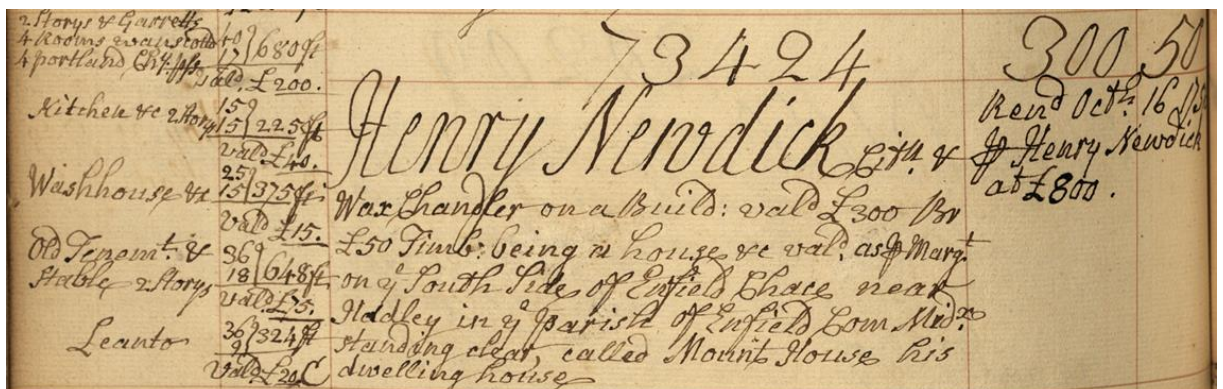 2 Storys & Garretts
4 Rooms wainscotted 40
17 } 680 ft
4 portland Chy: pps
Vald. £200.
Kitchen &c 2 Storys 15
15 } 225 ft
Vald £40.
Washhouse &c 25
15 } 375 ft
Vald £15.
Old Tenemt. & 36
Stable 2 Storys 18 } 648 ft
Vald £75.
Leanto 36
9 } 324 ft
Vald. £20 C
73424
Henry Newdick Citn. &
Wax Chandler on a Build: vald £300 Br
£50 Timb: being a house &c vald. as p Margt
on ye South Side of Enfield Chace near
Hadley in ye parish of Enfield Com Midx.
standing clear, called Mount House his
dwelling house
300 50
Rend Octr. 16
p Henry Newdick
at £800.